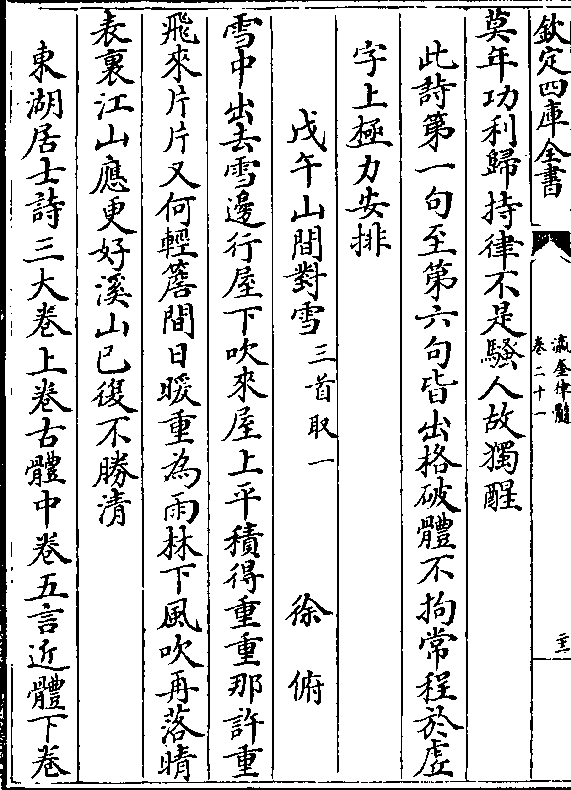 欽定四庫全書
瀛奎律髓
卷二十一
莫年功利歸持律不是騷人故獨醒
此詩第一句至第六句皆出格破體不拘常程於虛
字上極力安排
戊午山間對雪三首取一 徐俯
雪中出去雪邊行屋下吹來屋上平積得重重那許重
飛來片片又何輕簷間日暖重為雨林下風吹再落晴
表裏江山應更好溪山已復不勝清
東湖居士詩三大卷上卷古體中卷五言近體下卷